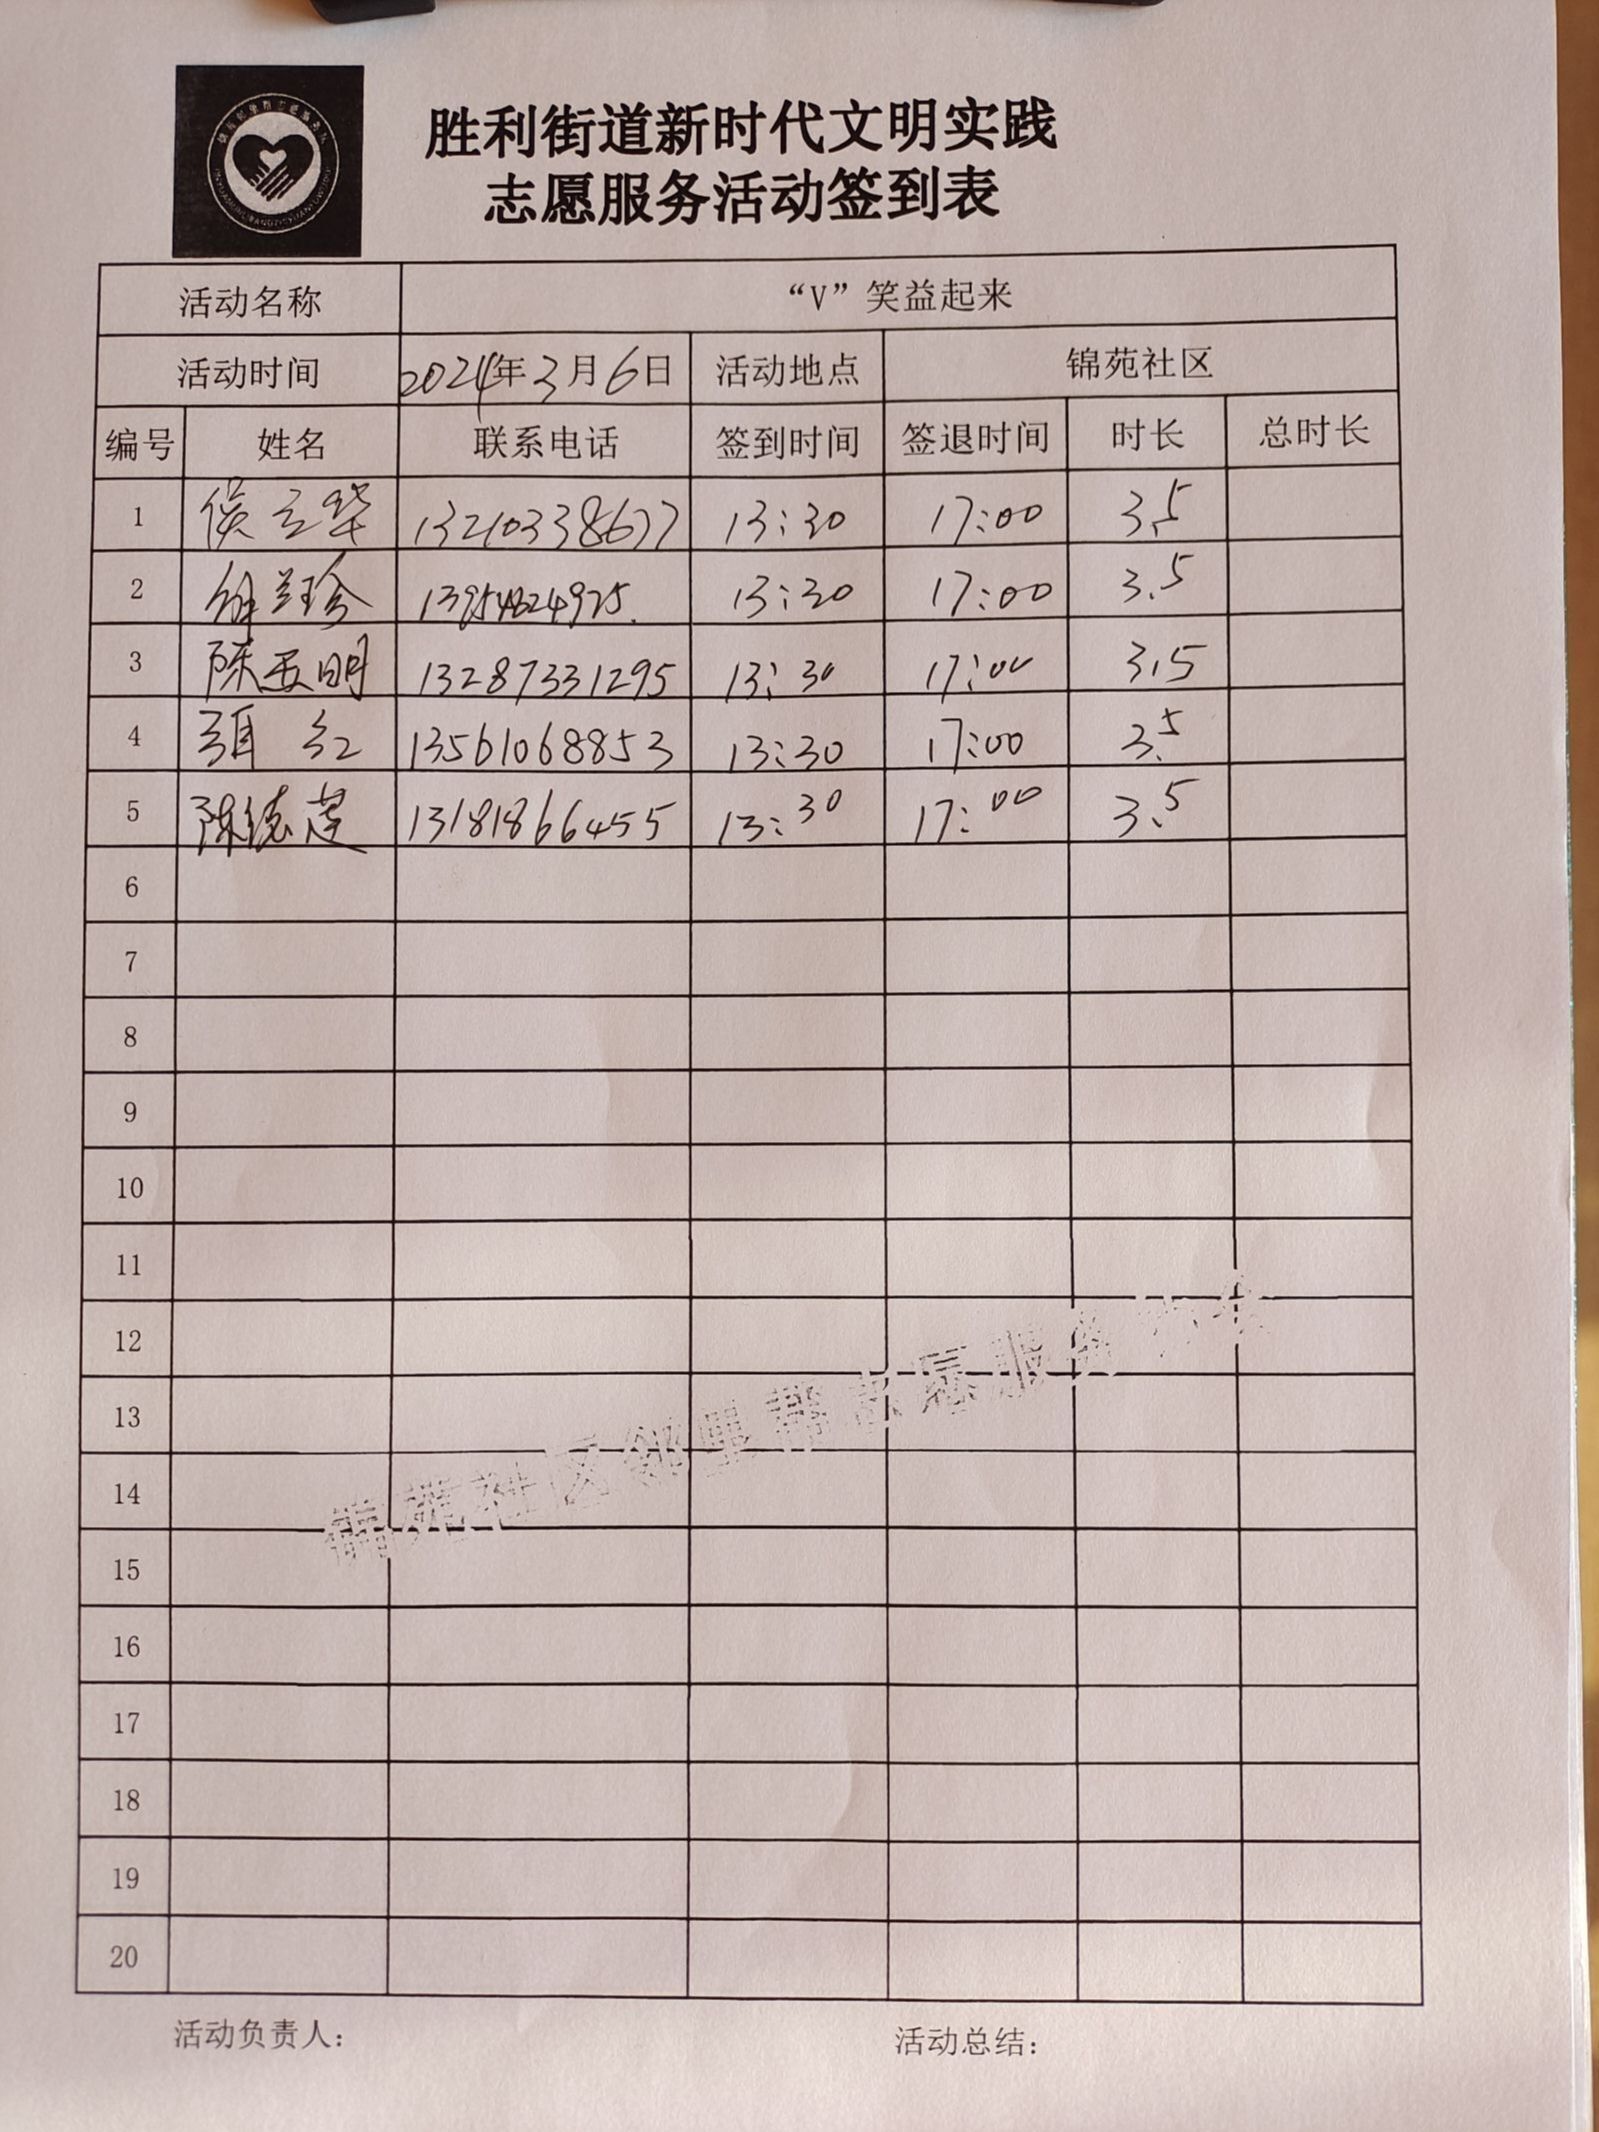 胜利街道新时代文明实践
志愿服务活动签到表
活动名称 “V”笑益起来
活动时间 2024年3月6日 活动地点 锦苑社区
编号 姓名 联系电话 签到时间 签退时间 时长 总时长
1 侯立华 13210338677 13:30 17:00 3.5
2 徐兰珍 13:30 17:00 3.5
3 陈亚明 13287331295 13:30 17:00 3.5
4 红 13561068853 13:30 17:00 3.5
5 陈德莲 13181866455 13:30 17:00 3.5
6
7
8
9
10
11
12
13
14
15
16
17
18
19
20
锦苑社区邻里帮志愿服务
活动负责人: 活动总结: